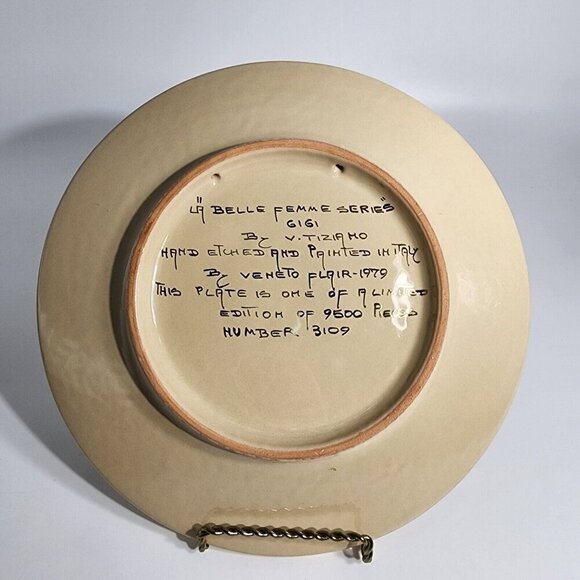 "LA BELLE FEMME SERIES"
GIGI
By V. TIZIANO
HAND ETCHED AND PAINTED IN ITALY
By VENETO FLAIR-1979
THIS PLATE IS ONE OF A LIMITED
EDITION OF 9500 PIECES
NUMBER. 3109